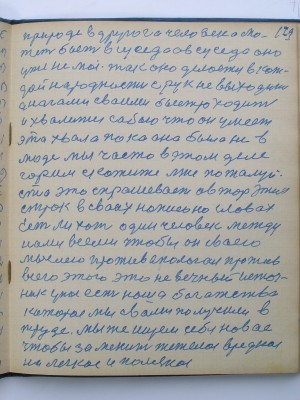 129
природе в друрога человека мо-
жет быть в соседа ов суседа оно
уже не мой. так оно делаетца в каж-
дой народности с рук не выходим
ногами своими быстро ходим
и хвалимся сабою что он умеет
эта хвала пока она была не в
моде мы часто в этом деле
гарим скажите мне пожалуй-
ста это спрашевает автор этих
строк в своих написано словах
есть ли хот один человек между
нами всеми чтобы он своею
мыслею против
всего этого это не вечный источ-
ник у нас есть наша богатства
каторая мы своим получили в
труде. мы же ищем себе новае
чтобы заменить тежелое вредное
на легкое и полезное